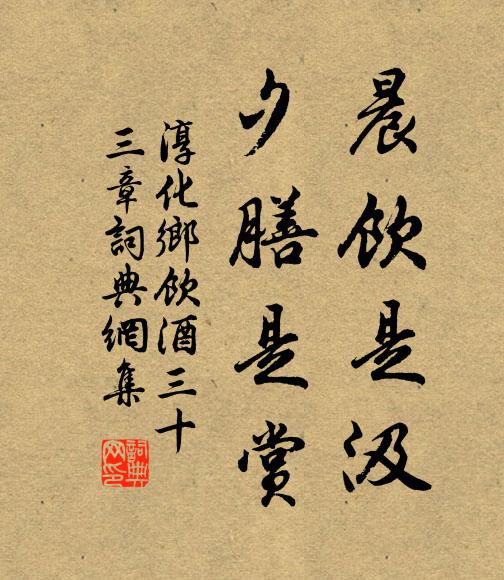 晨飲是汲
夕膳是賞
淳化鄉飲酒三十
三章詞典網集
詞典
网印